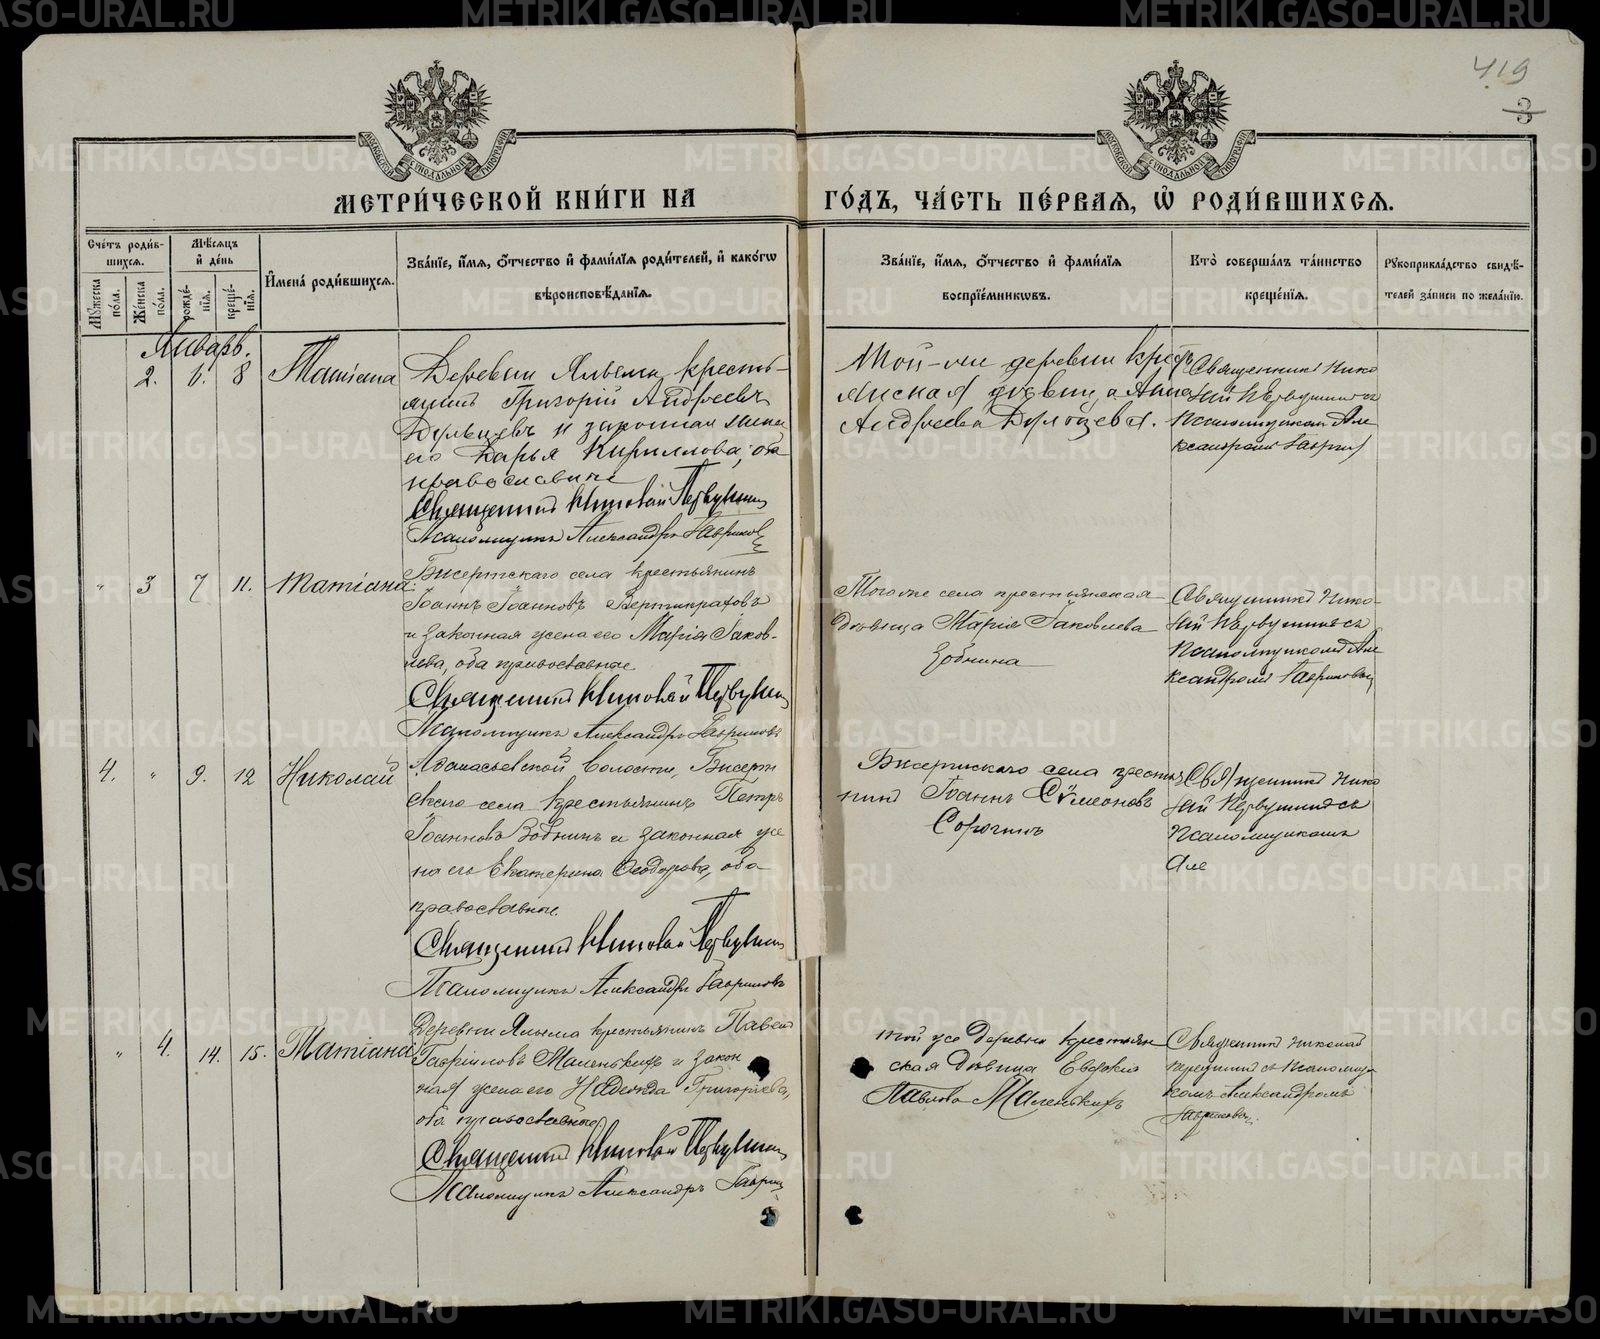 419
3
МОСКОВСКОЙ СѴНОДАЛЬНОЙ ТИПОГРАФІИ
МОСКОВСКОЙ СѴНОДАЛЬНОЙ ТИПОГРАФІИ
МЕТРИ́ЧЕСКОЙ КНИ́ГИ НА ГО́ДЪ, ЧА́СТЬ ПЕ́РВАЯ, Ѽ РОДИ́ВШИХСЯ.
Сче́тъ роди́в-
шихся.
Мѣ́сяцъ
и҆ де́нь
Му́жеска по́ла.
Же́нска по́ла.
рожде́-нїя.
креще́-нїя.
И҆мена̀ роди́вшихся.
Зва́нїе, и҆́мя, ѻ҆́тчество и҆ фами́лїя роди́телей, и҆ како́гѡ
вѣроисповѣ́данїя.
Зва́нїе, и҆́мя, ѻ҆́тчество и҆ фами́лїя
воспрїе́мникѡвъ.
Кто̀ соверша́лъ та́инство
креще́нїя.
Рꙋкоприкла́дство свидѣ́-
телей за́писи по жела́нїю.
Январь.
2. 6. 8 Татіана
Деревни Яльма кресть-
янинъ Григорій Андреевъ
и законная жена
его Дарья Кириллова, оба
православные
Священникъ Николай Первушинъ
Псаломщикъ Александръ Гавриловъ
Той-же деревни крестъ-
янская дѣвица Анна
Андреева
Священникъ Нико
лай Первушинъ съ
псаломщикомъ Але
ксандромъ Гаврил
" 3 7 11. Татіана
Бисертскаго села крестьянинъ
Іоаннъ Іоанновъ Вертипраховъ
и законная жена его Марія Іаков-
лева, оба православные
Священникъ Николай Первушин
Псаломщикъ Александръ Гавриловъ
Того же села крестьянская
дѣвица Марія Іаковлева
Зобнина
Священникъ Нико-
лай Первушинъ съ
псаломщикомъ Але
ксандромъ Гавриловым
4. " 9. 12 Николай
Афанасьевской волости, Бисерт
скаго села крестьянинъ Петръ
Іоанновъ Зобнинъ и законная же
на его Екатерина Ѳеодорова, оба
православные.
Священникъ Николай Первушин
Псаломщикъ Александръ Гавриловъ
Бисертскаго села крестья
нинъ Іоаннъ Сѵмеоновъ
Сорочинъ
Священникъ Нико
лай Первушинъ съ
псаломщикомъ
Але
" 4. 14. 15. Татіана
Деревни Яльма крестьянинъ Павел
Гавріиловъ Маленькихъ и закон
ная жена его Надежда Григорьева,
оба православные
Священникъ Николай Первушин
Псаломщикъ Александръ Гаврил
той же деревни крестьян
ская дѣвица Евдокія
Павлова Маленькихъ
Священникъ Николай
Первушинъ съ псаломщи
комъ Александромъ
Гавриловым.